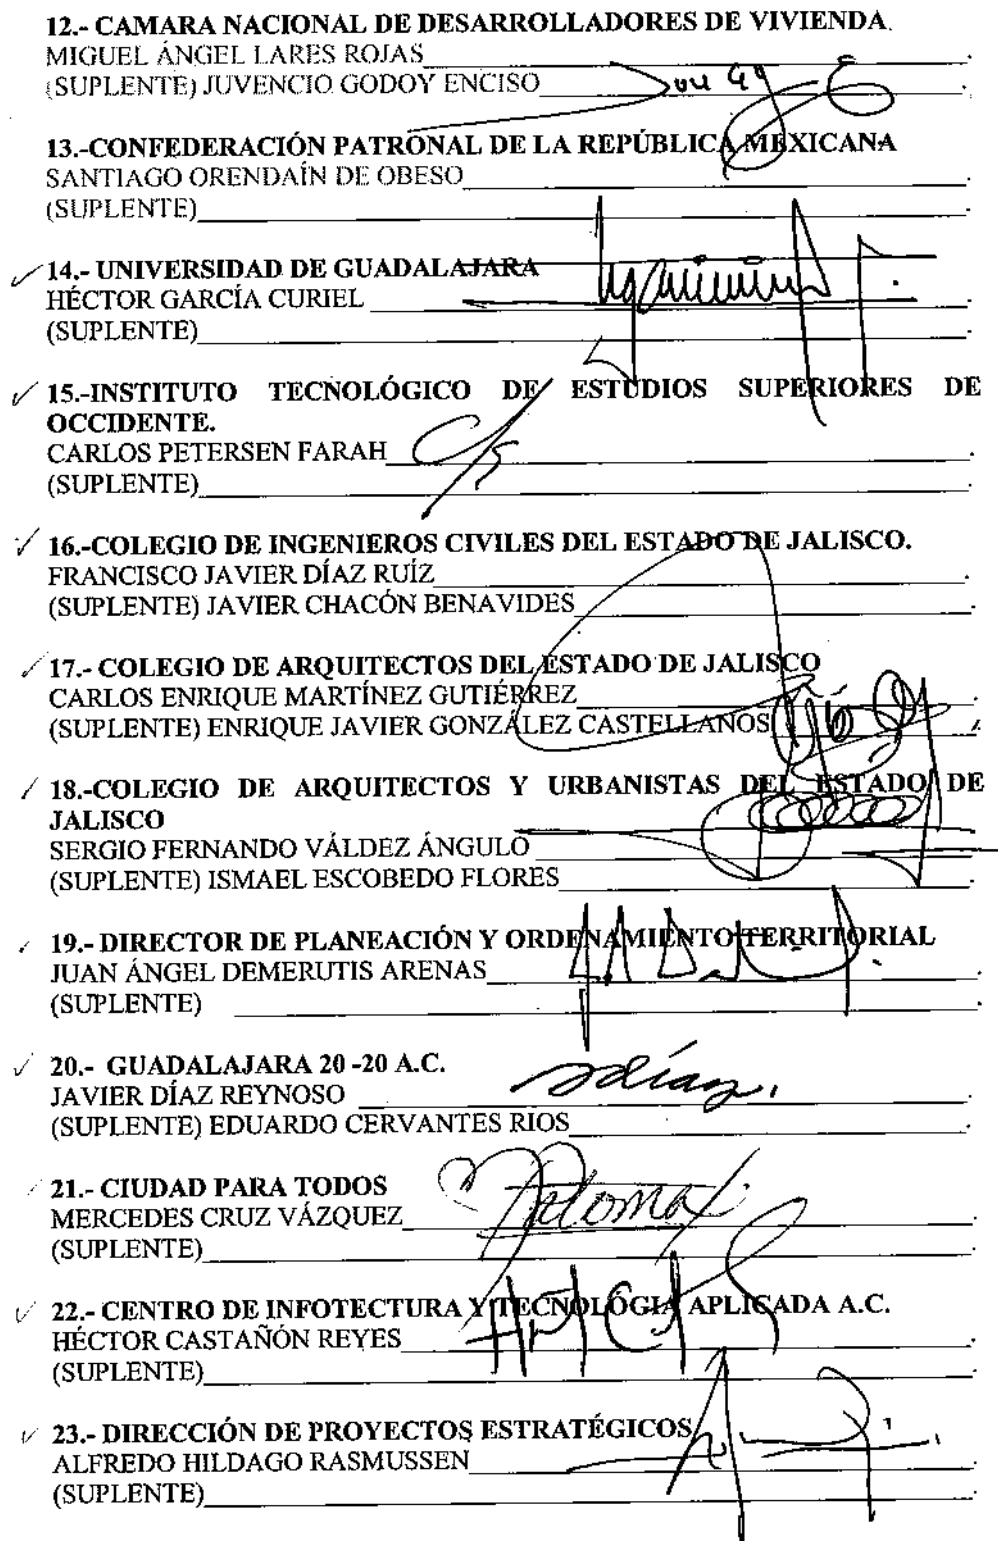 12.- CAMARA NACIONAL DE DESARROLLADORES DE VIVIENDA.
MIGUEL ÁNGEL LARES ROJAS
(SUPLENTE) JUVENCIO GODOY ENCISO
13.-CONFEDERACIÓN PATRONAL DE LA REPÚBLICA MEXICANA
SANTIAGO ORENDAÍN DE OBESO
(SUPLENTE)
14.- UNIVERSIDAD DE GUADALAJARA
HÉCTOR GARCÍA CURIEL
(SUPLENTE)
15.-INSTITUTO TECNOLÓGICO DE ESTUDIOS SUPERIORES DE
OCCIDENTE.
CARLOS PETERSEN FARAH
(SUPLENTE)
16.-COLEGIO DE INGENIEROS CIVILES DEL ESTADO DE JALISCO.
FRANCISCO JAVIER DÍAZ RUÍZ
(SUPLENTE) JAVIER CHACÓN BENAVIDES
17.- COLEGIO DE ARQUITECTOS DEL ESTADO DE JALISCO
CARLOS ENRIQUE MARTÍNEZ GUTIÉRREZ
(SUPLENTE) ENRIQUE JAVIER GONZÁLEZ CASTELLANOS
18.-COLEGIO DE ARQUITECTOS Y URBANISTAS DEL ESTADO DE
JALISCO
SERGIO FERNANDO VÁLDEZ ÁNGULO
(SUPLENTE) ISMAEL ESCOBEDO FLORES
19.- DIRECTOR DE PLANEACIÓN Y ORDENAMIENTO TERRITORIAL
JUAN ÁNGEL DEMERUTIS ARENAS
(SUPLENTE)
20.- GUADALAJARA 20 -20 A.C.
JAVIER DÍAZ REYNOSO
(SUPLENTE) EDUARDO CERVANTES RIOS
21.- CIUDAD PARA TODOS
MERCEDES CRUZ VÁZQUEZ
(SUPLENTE)
22.- CENTRO DE INFOTECTURA Y TECNOLÓGIA APLICADA A.C.
HÉCTOR CASTAÑÓN REYES
(SUPLENTE)
23.- DIRECCIÓN DE PROYECTOS ESTRATÉGICOS
ALFREDO HILDAGO RASMUSSEN
(SUPLENTE)